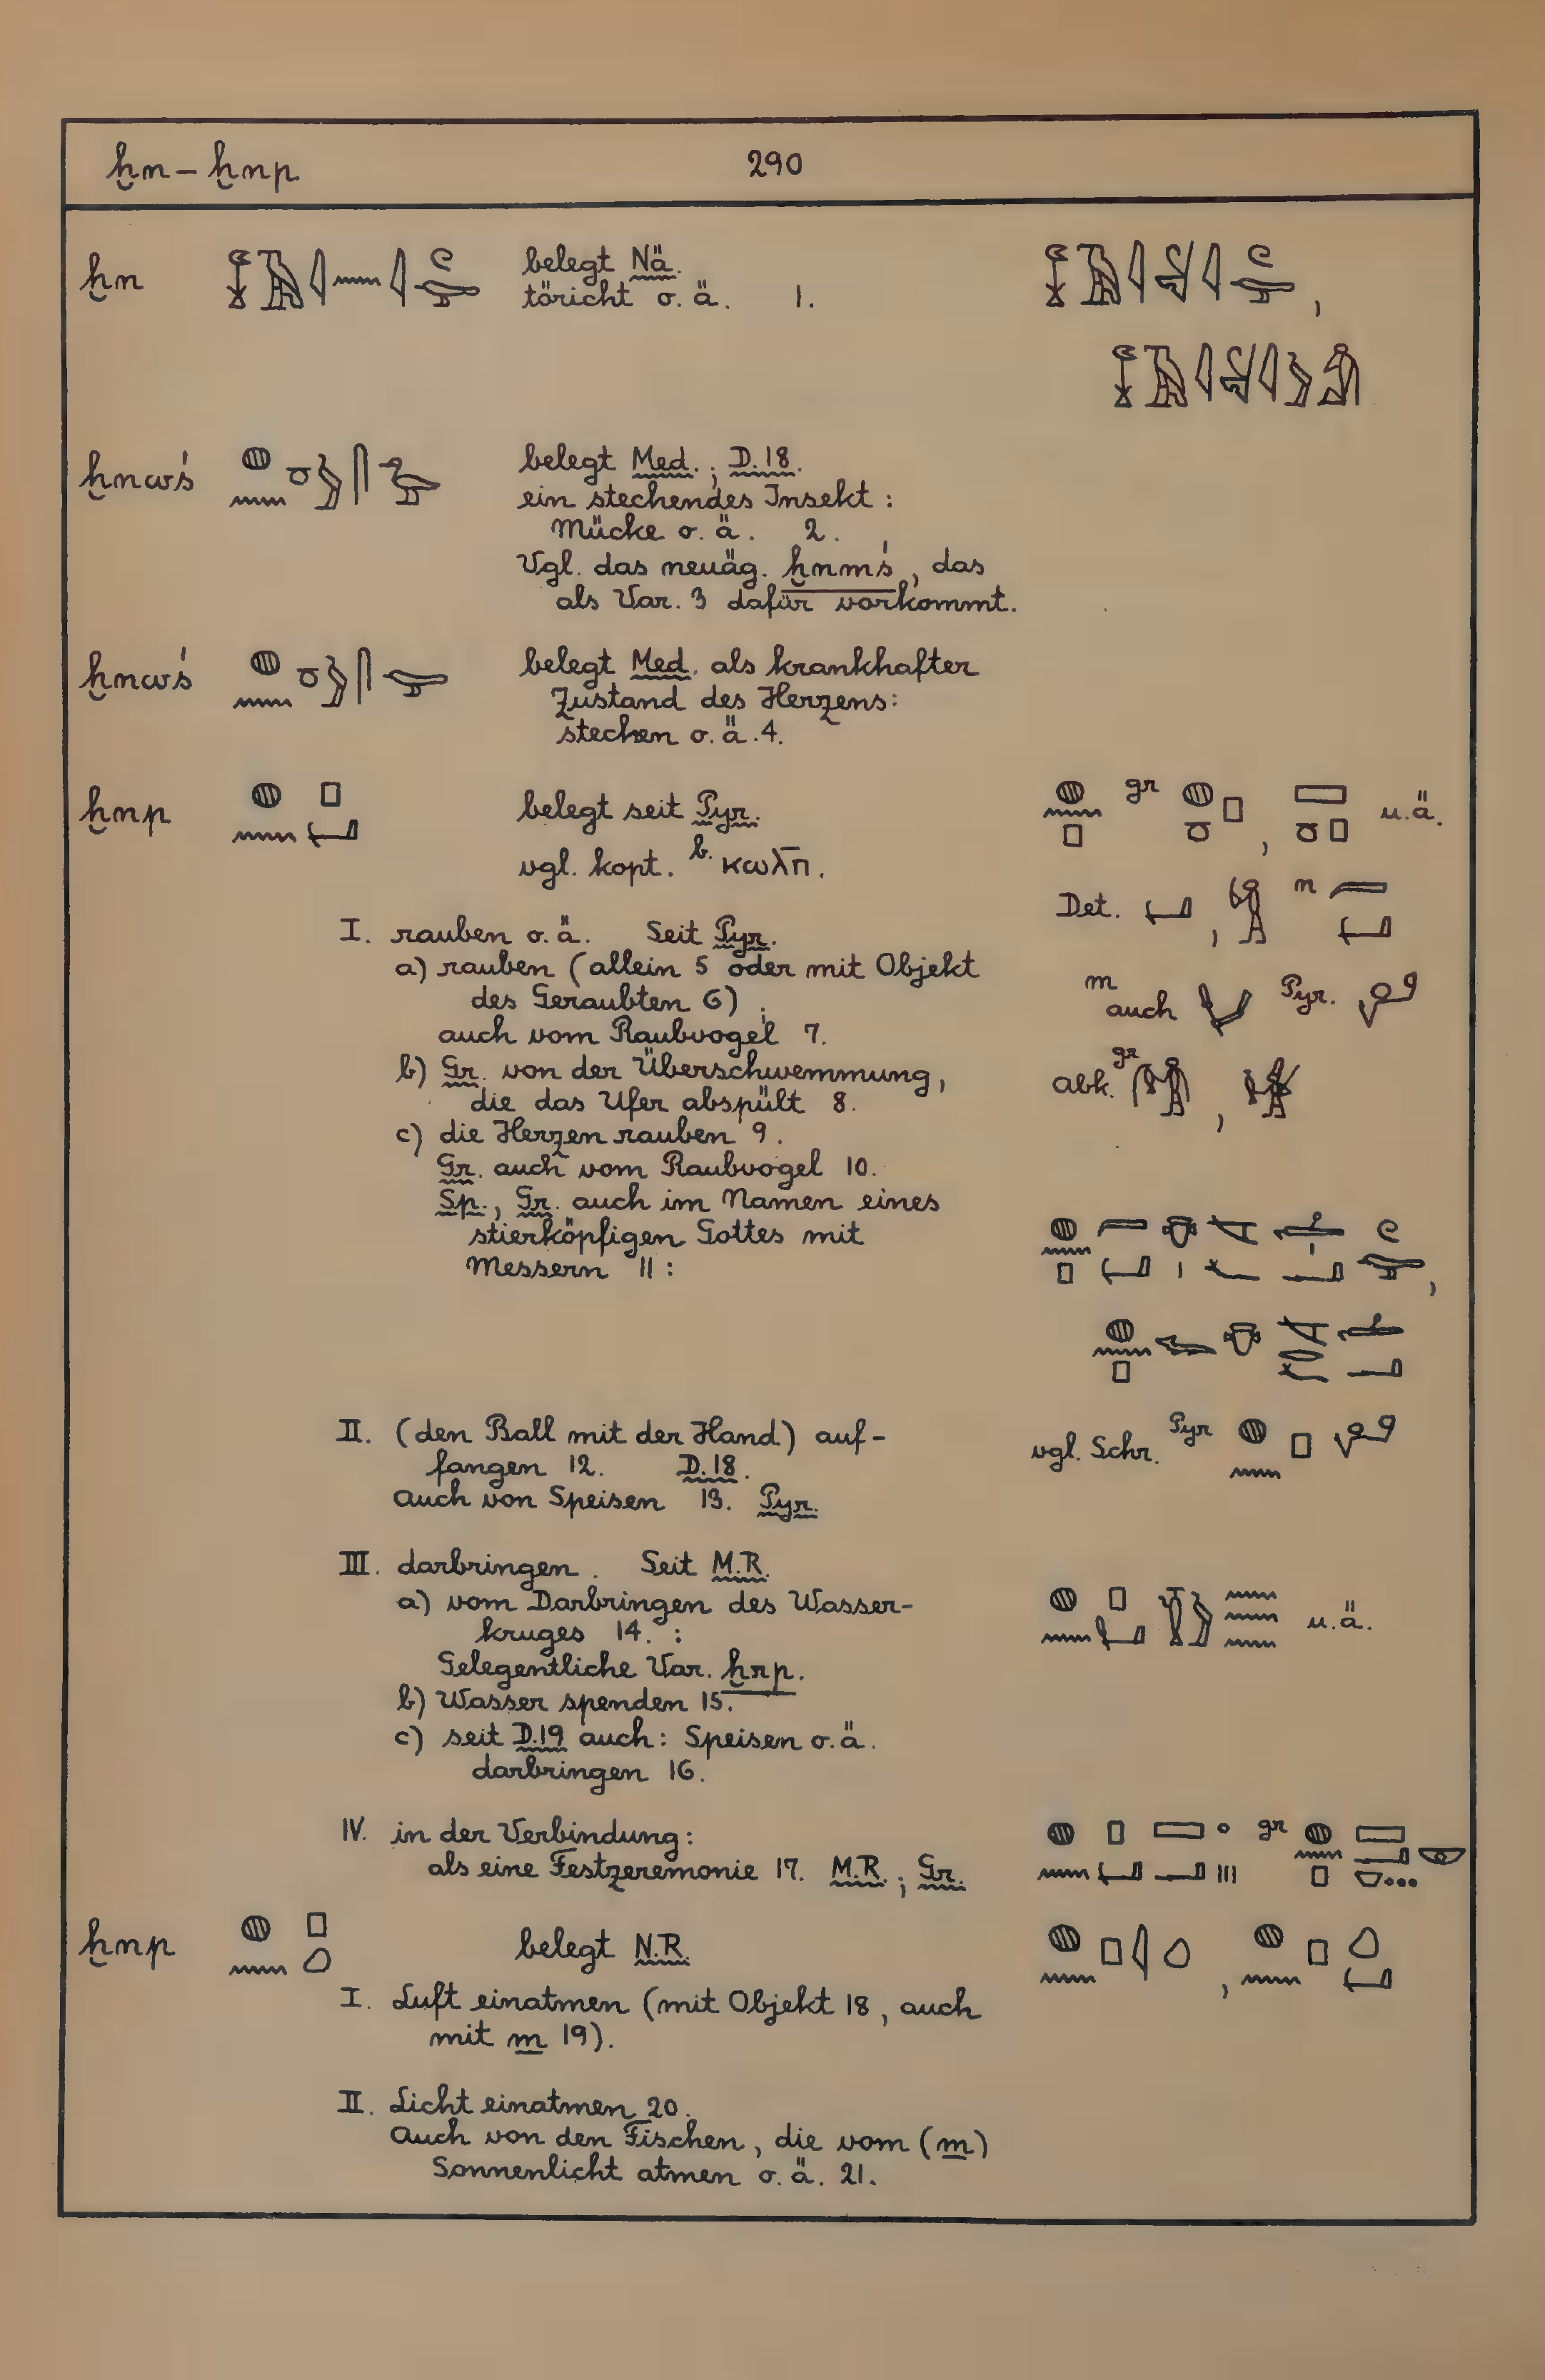 ḫn – ḫnp 290
ḫn belegt Nä.
töricht o. ä. 1.
ḫnwś belegt Med.; D.18.
ein stechendes Insekt:
Mücke o. ä. 2.
Vgl. das neuäg. ḫnmś, das
als Var. 3 dafür vorkommt.
ḫnwś belegt Med. als krankhafter
Zustand des Herzens:
stechen o. ä. 4.
ḫnp belegt seit Pyr. gr u.ä.
vgl. kopt. b. ⲕⲱⲗⲡ̄.
Det. m
I. rauben o. ä. Seit Pyr.
a) rauben (allein 5 oder mit Objekt
des Geraubten 6);
m auch Pyr.
auch vom Raubvogel 7.
b) Gr. von der Überschwemmung,
die das Ufer abspült 8.
abk. gr
c) die Herzen rauben 9.
Gr. auch vom Raubvogel 10.
Sp., Gr. auch im Namen eines
stierköpfigen Gottes mit
Messern 11:
II. (den Ball mit der Hand) auf-
fangen 12. D.18.
vgl. Schr. Pyr
auch von Speisen 13. Pyr.
III. darbringen. Seit M.R.
a) vom Darbringen des Wasser-
kruges 14.: u.ä.
Gelegentliche Var. ḫrp.
b) Wasser spenden 15.
c) seit D.19 auch: Speisen o. ä.
darbringen 16.
IV. in der Verbindung: gr
als eine Festzeremonie 17. M.R.; Gr.
ḫnp belegt N.R.
I. Luft einatmen (mit Objekt 18, auch
mit m 19).
II. Licht einatmen 20.
Auch von den Fischen, die vom (m)
Sonnenlicht atmen o. ä. 21.